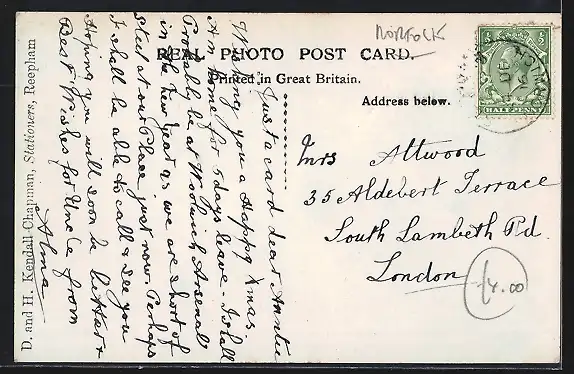 NORFOLK
REAL PHOTO POST CARD.
Printed in Great Britain.
Address below.
HALFPENNY
Just a card dear Auntie
Wishing you a Happy Xmas.
Am home for 5 days leave. I shall
Probably be at Woolwich Arsenal
in the New Year as we are short of
steel at our Place just now. Perhaps
I shall be able to call & see you
Hoping you will soon be better &
Best Wishes for Uncle from
Alma
Mrs Attwood
35 Aldebert Terrace
South Lambeth Rd.
London
£4.00
D. and H. Kendall-Chapman, Stationers, Reepham